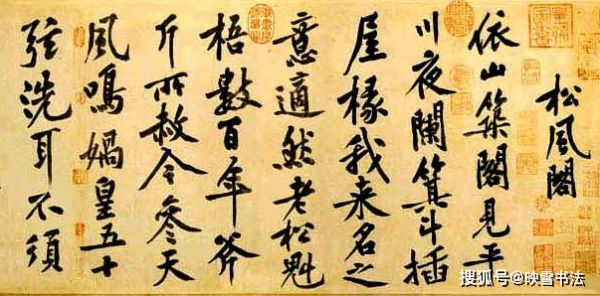 松風閣
依山築閣見平
川夜闌箕斗插
屋椽我来名之
意適然老松魁
梧數百年斧
斤所赦今參天
風鳴媧皇五十
弦洗耳不須
搜狐号@映雪书法